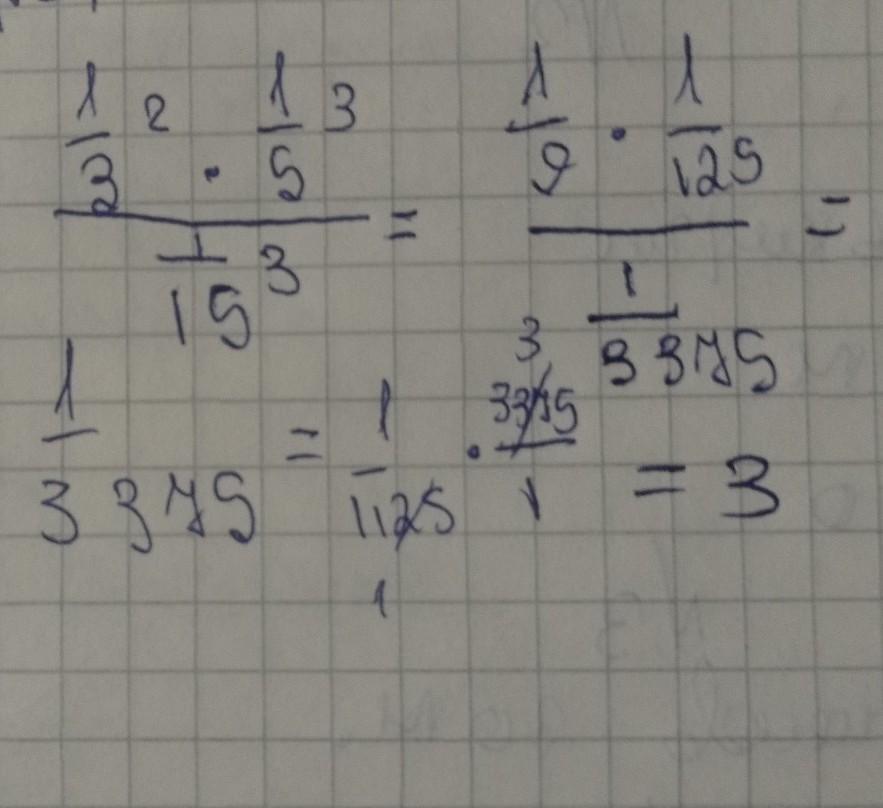 1/3 ² · 1/5 ³ / 1/15 ³ = 1/9 · 1/125 / 1/3375 =
1/3375 = 1/1125 · 3375/1 = 3
3
1